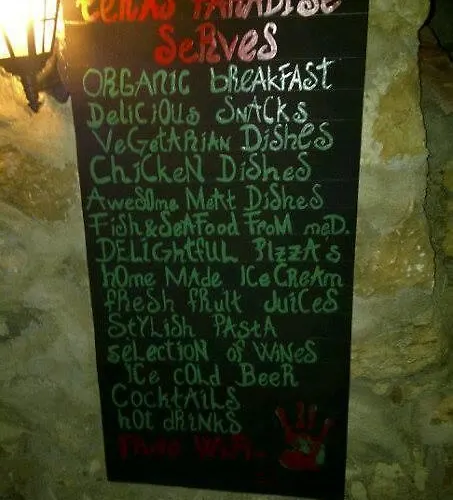 PARADISE
SeRVeS
ORGANIC bREAKFAST
DeliCiOUs SNACKs
VeGeTARiAN DisheS
ChiCKeN DisheS
AweSOme MeAt DisheS
Fish & SeAFood FroM meD.
DELiGhtFUL PIZZA's
hOme MAde ICe CReam
fResh fRuit JuiCeS
StYLish PAStA
seLeCtioN of WiNeS
ICe COLd BeeR
COCKtAiLS
hOt dRiNKS